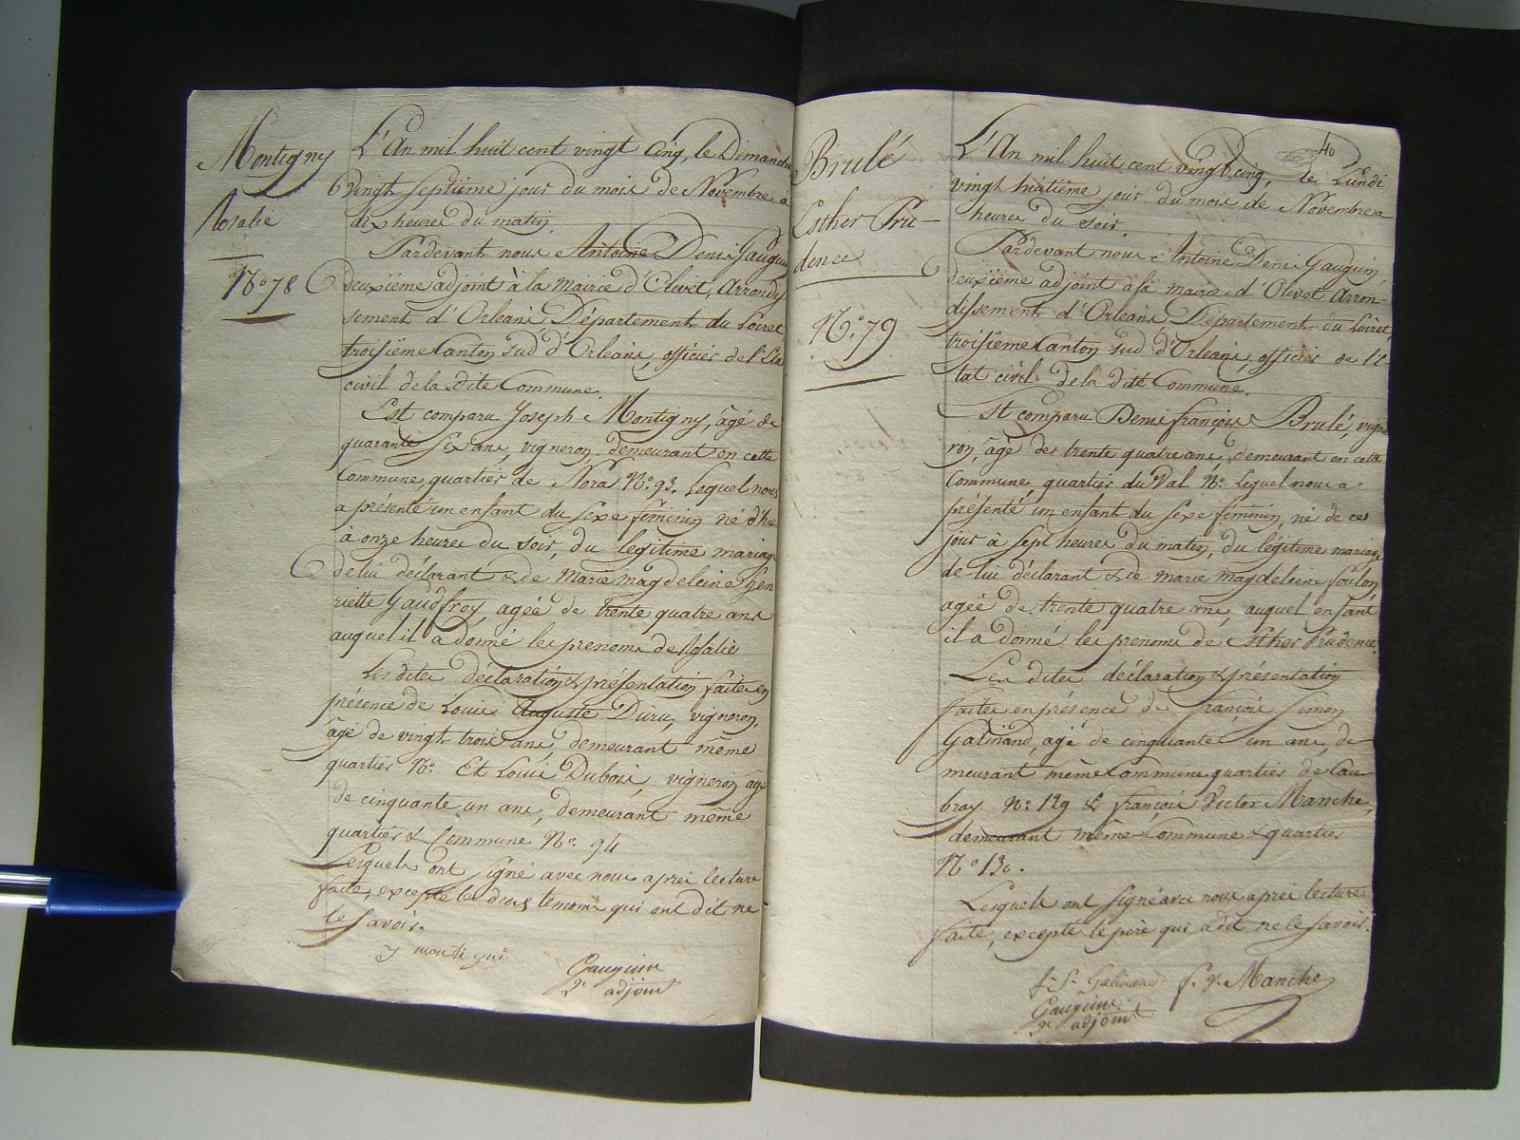 Montigny
Rosalie
N.o 78
L'An mil huit cent vingt Cinq, le Dimanche
vingt septième jour du mois de Novembre à
dix heures du matin.
Pardevant nous Antoine Denis Gauguin
deuxième adjoint à la Mairie d'Olivet, Arrondis
sement d'Orléans Département du Loiret
troisième Canton sud d'Orléans, officier de l'Eta
civil de la dite Commune.
Est comparu Joseph Montigny, âgé de
quarante six ans, vigneron, demeurant en cette
Commune, quartier de Nora N.o 93. Lequel nous
a présenté un enfant du sexe féminin né d'hier
à onze heures du soir, du légitime mariage
de lui déclarant & de Marie magdeleine Hen
riette Gaudfroy, agée de trente quatre ans
auquel il a donné les prenoms de Rosalie
Les dites déclaration & présentation faites en
présence de Louis Auguste Duru, vigneron,
âgé de vingt trois ans, demeurant même
quartier N.o Et Louis Dubois, vigneron âgé
de cinquante un ans, demeurant même
quartier & Commune N.o 94
Lesquels ont signé avec nous après lecture
faite, excepté les deux témoins qui ont dit ne
le savoir.
J montigni
Gauguin
2e adjoint
Brulé
Esther Pru-
dence
N.o 79
40
L'An mil huit cent vingt cinq, le Lundi
vingt huitième jour du mois de Novembre
heures du soir.
Pardevant nous Antoine Denis Gauguin
deuxième adjoint à la mairie d'Olivet Arron-
dissement d'Orléans, Département du Loiret,
troisième Canton sud d'Orléans, officier de l'E-
tat civil de la dite Commune.
Est comparu Denis françois Brulé, vigne
ron, âgé de trente quatre ans, demeurant en cette
Commune, quartier du Val N.o Lequel nous a
présenté un enfant du sexe féminin, né de ce
jour à sept heures du matin, du légitime mariage
de lui déclarant & de marie magdeleine foulon,
agée de trente quatre ans, auquel enfant
il a donné les prenoms de Esther Prudence.
Les dites déclaration & présentation
faites en présence de françois simon
Galinand, agé de cinquante un ans, de
meurant même Commune quartier de Cau
bray N.o 129 & françois Victor Manche,
demeurant même Commune & quartier
N.o 130.
Lesquels ont signé avec nous après lecture
faite, excepté le père qui a dit ne le savoir.
f. S. Galinand f. v. Manche
Gauguin
2e adjoint